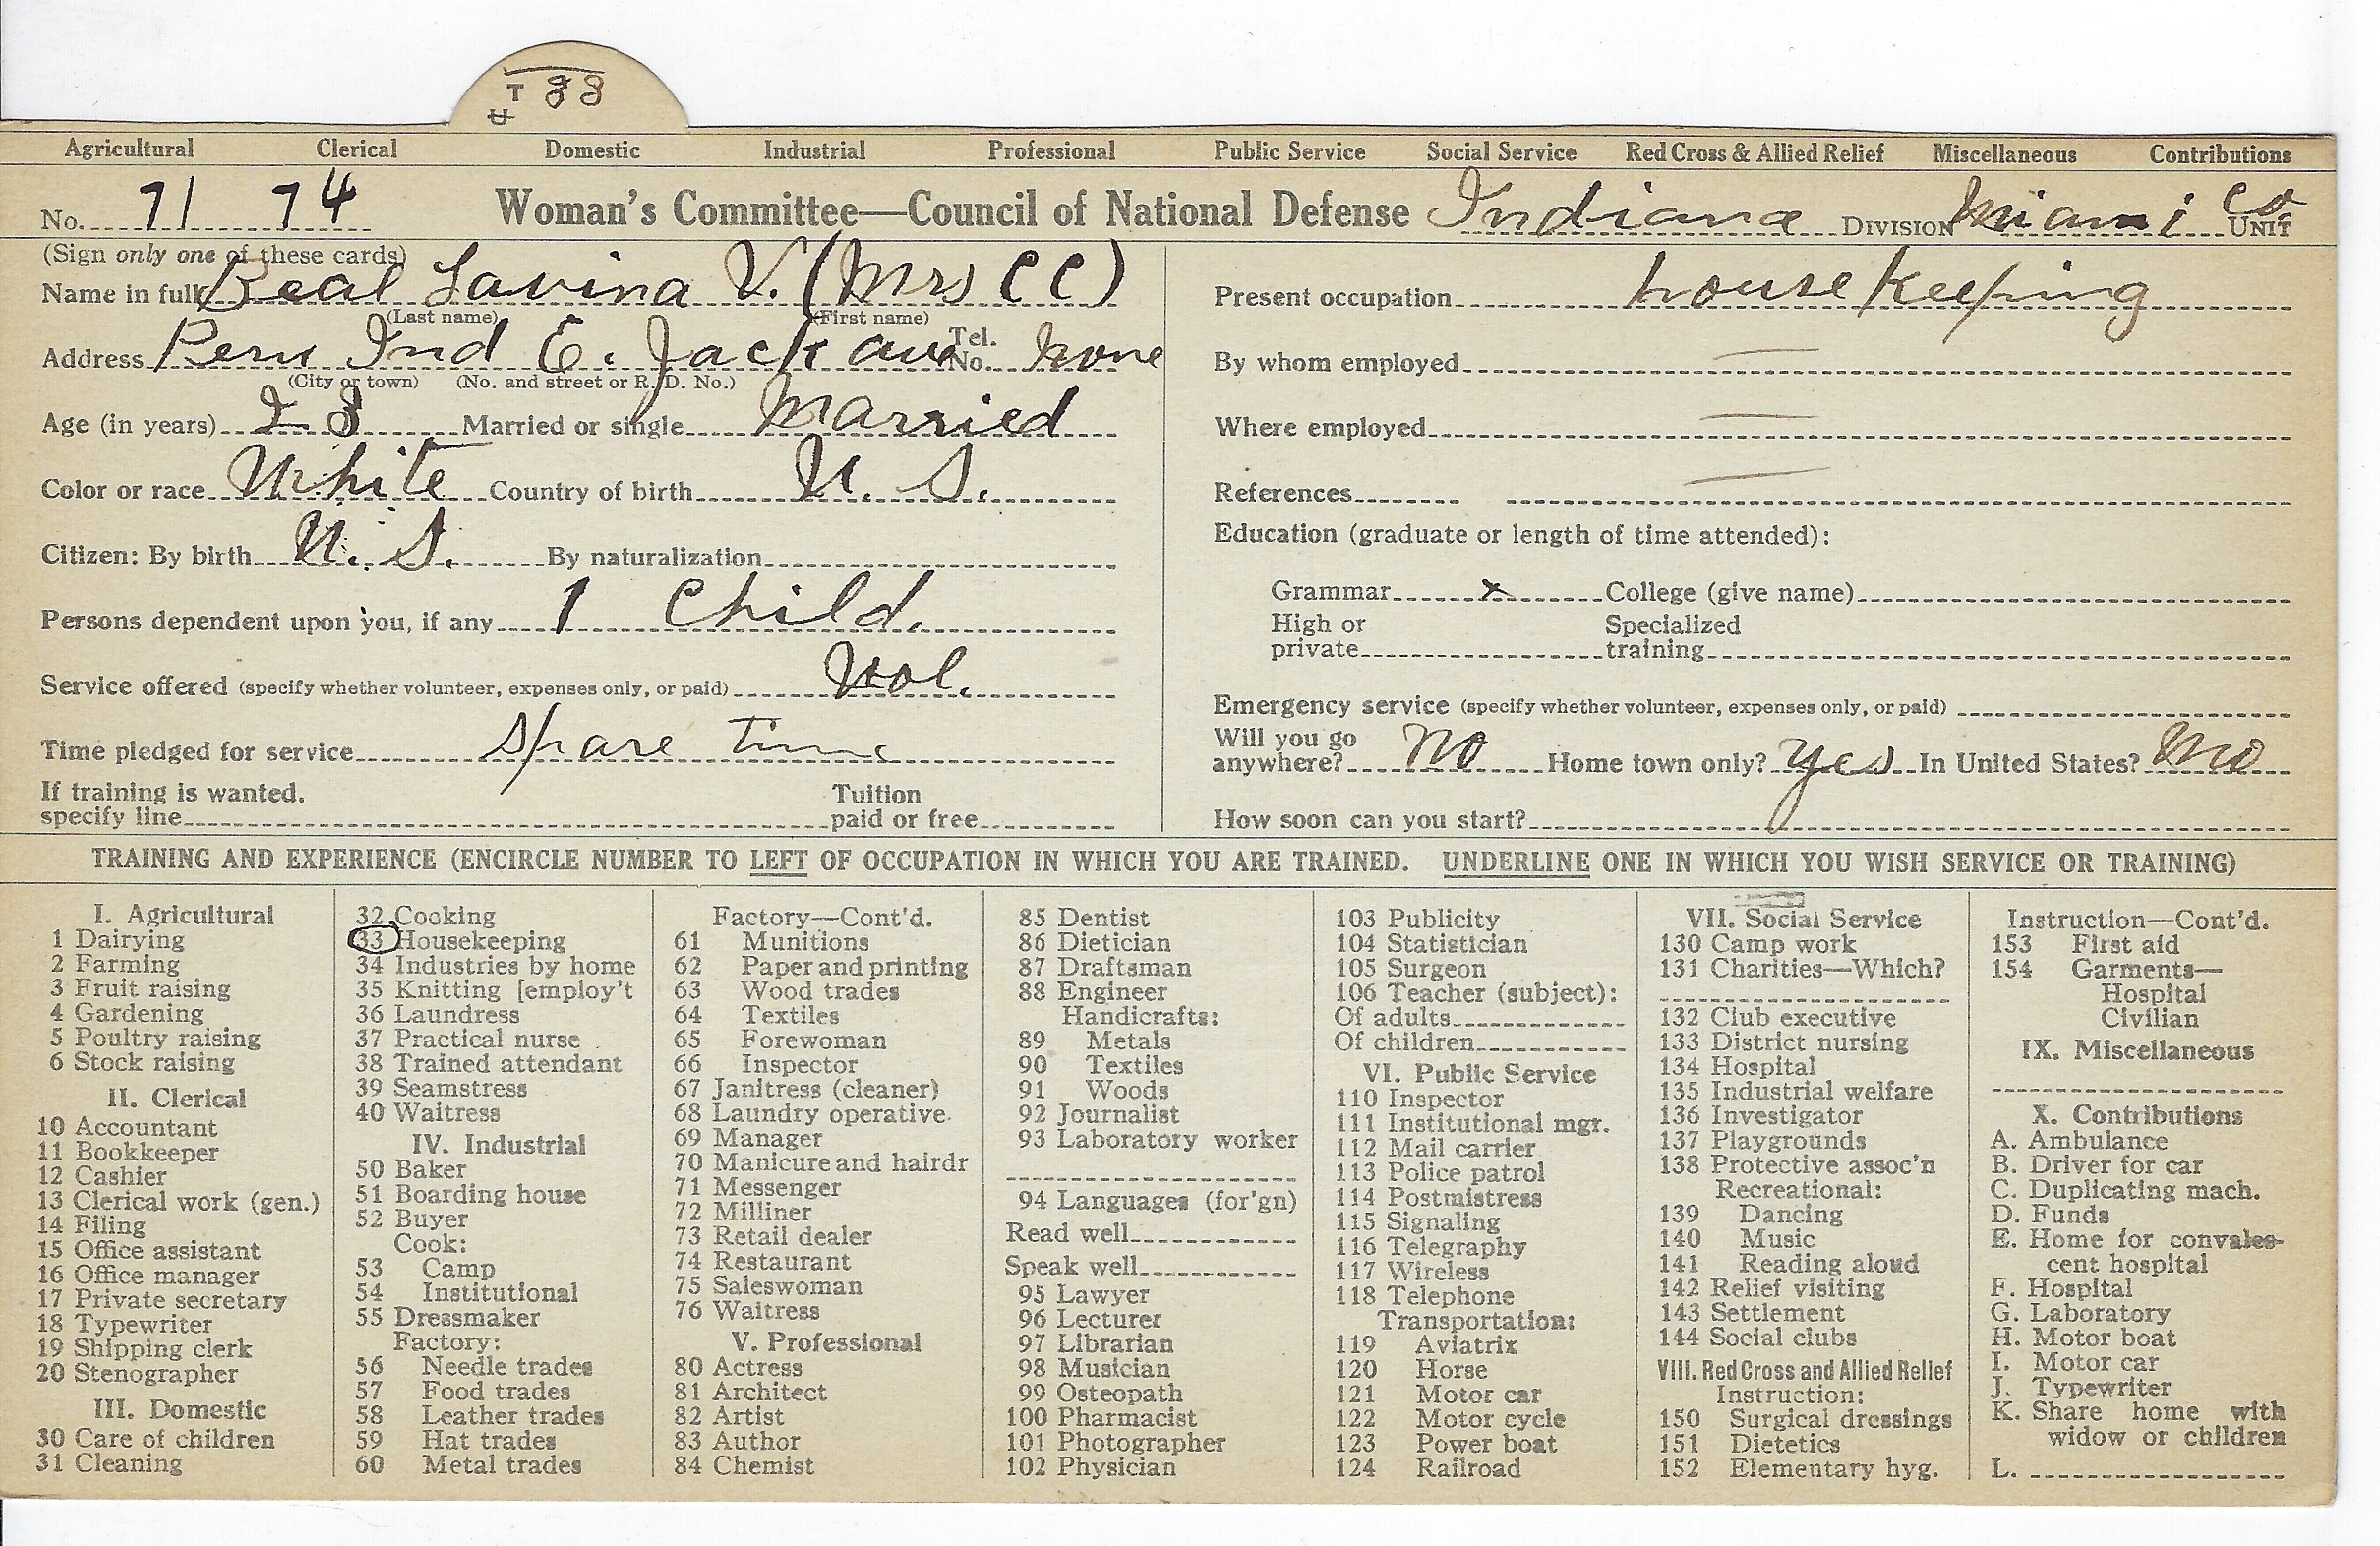 T 33
U
Agricultural Clerical Domestic Industrial Professional Public Service Social Service Red Cross & Allied Relief Miscellaneous Contributions
No. 71 74 Woman's Committee—Council of National Defense Indiana DIVISION Miami Co UNIT
(Sign only one of these cards)
Name in full Beal Lavina V. (Mrs C C)
(Last name) (First name)
Address Peru Ind E. Jack ave Tel. No. none
(City or town) (No. and street or R. D. No.)
Age (in years) 23 Married or single Married
Color or race White Country of birth U. S.
Citizen: By birth U. S. By naturalization
Persons dependent upon you, if any 1 Child.
Service offered (specify whether volunteer, expenses only, or paid) Vol.
Time pledged for service spare time
If training is wanted, specify line Tuition paid or free
Present occupation house keeping
By whom employed —
Where employed —
References —
Education (graduate or length of time attended):
Grammar x College (give name)
High or private Specialized training
Emergency service (specify whether volunteer, expenses only, or paid)
Will you go anywhere? No Home town only? yes In United States? No
How soon can you start?
TRAINING AND EXPERIENCE (ENCIRCLE NUMBER TO LEFT OF OCCUPATION IN WHICH YOU ARE TRAINED. UNDERLINE ONE IN WHICH YOU WISH SERVICE OR TRAINING)
I. Agricultural
1 Dairying
2 Farming
3 Fruit raising
4 Gardening
5 Poultry raising
6 Stock raising
II. Clerical
10 Accountant
11 Bookkeeper
12 Cashier
13 Clerical work (gen.)
14 Filing
15 Office assistant
16 Office manager
17 Private secretary
18 Typewriter
19 Shipping clerk
20 Stenographer
III. Domestic
30 Care of children
31 Cleaning
32 Cooking
33 Housekeeping
34 Industries by home
35 Knitting [employ't
36 Laundress
37 Practical nurse
38 Trained attendant
39 Seamstress
40 Waitress
IV. Industrial
50 Baker
51 Boarding house
52 Buyer
Cook:
53 Camp
54 Institutional
55 Dressmaker
Factory:
56 Needle trades
57 Food trades
58 Leather trades
59 Hat trades
60 Metal trades
Factory—Cont'd.
61 Munitions
62 Paper and printing
63 Wood trades
64 Textiles
65 Forewoman
66 Inspector
67 Janitress (cleaner)
68 Laundry operative
69 Manager
70 Manicure and hairdr
71 Messenger
72 Milliner
73 Retail dealer
74 Restaurant
75 Saleswoman
76 Waitress
V. Professional
80 Actress
81 Architect
82 Artist
83 Author
84 Chemist
85 Dentist
86 Dietician
87 Draftsman
88 Engineer
Handicrafts:
89 Metals
90 Textiles
91 Woods
92 Journalist
93 Laboratory worker
94 Languages (for'gn)
Read well
Speak well
95 Lawyer
96 Lecturer
97 Librarian
98 Musician
99 Osteopath
100 Pharmacist
101 Photographer
102 Physician
103 Publicity
104 Statistician
105 Surgeon
106 Teacher (subject):
Of adults
Of children
VI. Public Service
110 Inspector
111 Institutional mgr.
112 Mail carrier
113 Police patrol
114 Postmistress
115 Signaling
116 Telegraphy
117 Wireless
118 Telephone
Transportation:
119 Aviatrix
120 Horse
121 Motor car
122 Motor cycle
123 Power boat
124 Railroad
VII. Social Service
130 Camp work
131 Charities—Which?
132 Club executive
133 District nursing
134 Hospital
135 Industrial welfare
136 Investigator
137 Playgrounds
138 Protective assoc'n
Recreational:
139 Dancing
140 Music
141 Reading aloud
142 Relief visiting
143 Settlement
144 Social clubs
VIII. Red Cross and Allied Relief
Instruction:
150 Surgical dressings
151 Dietetics
152 Elementary hyg.
Instruction—Cont'd.
153 First aid
154 Garments—
Hospital
Civilian
IX. Miscellaneous
X. Contributions
A. Ambulance
B. Driver for car
C. Duplicating mach.
D. Funds
E. Home for convales-
cent hospital
F. Hospital
G. Laboratory
H. Motor boat
I. Motor car
J. Typewriter
K. Share home with
widow or children
L.